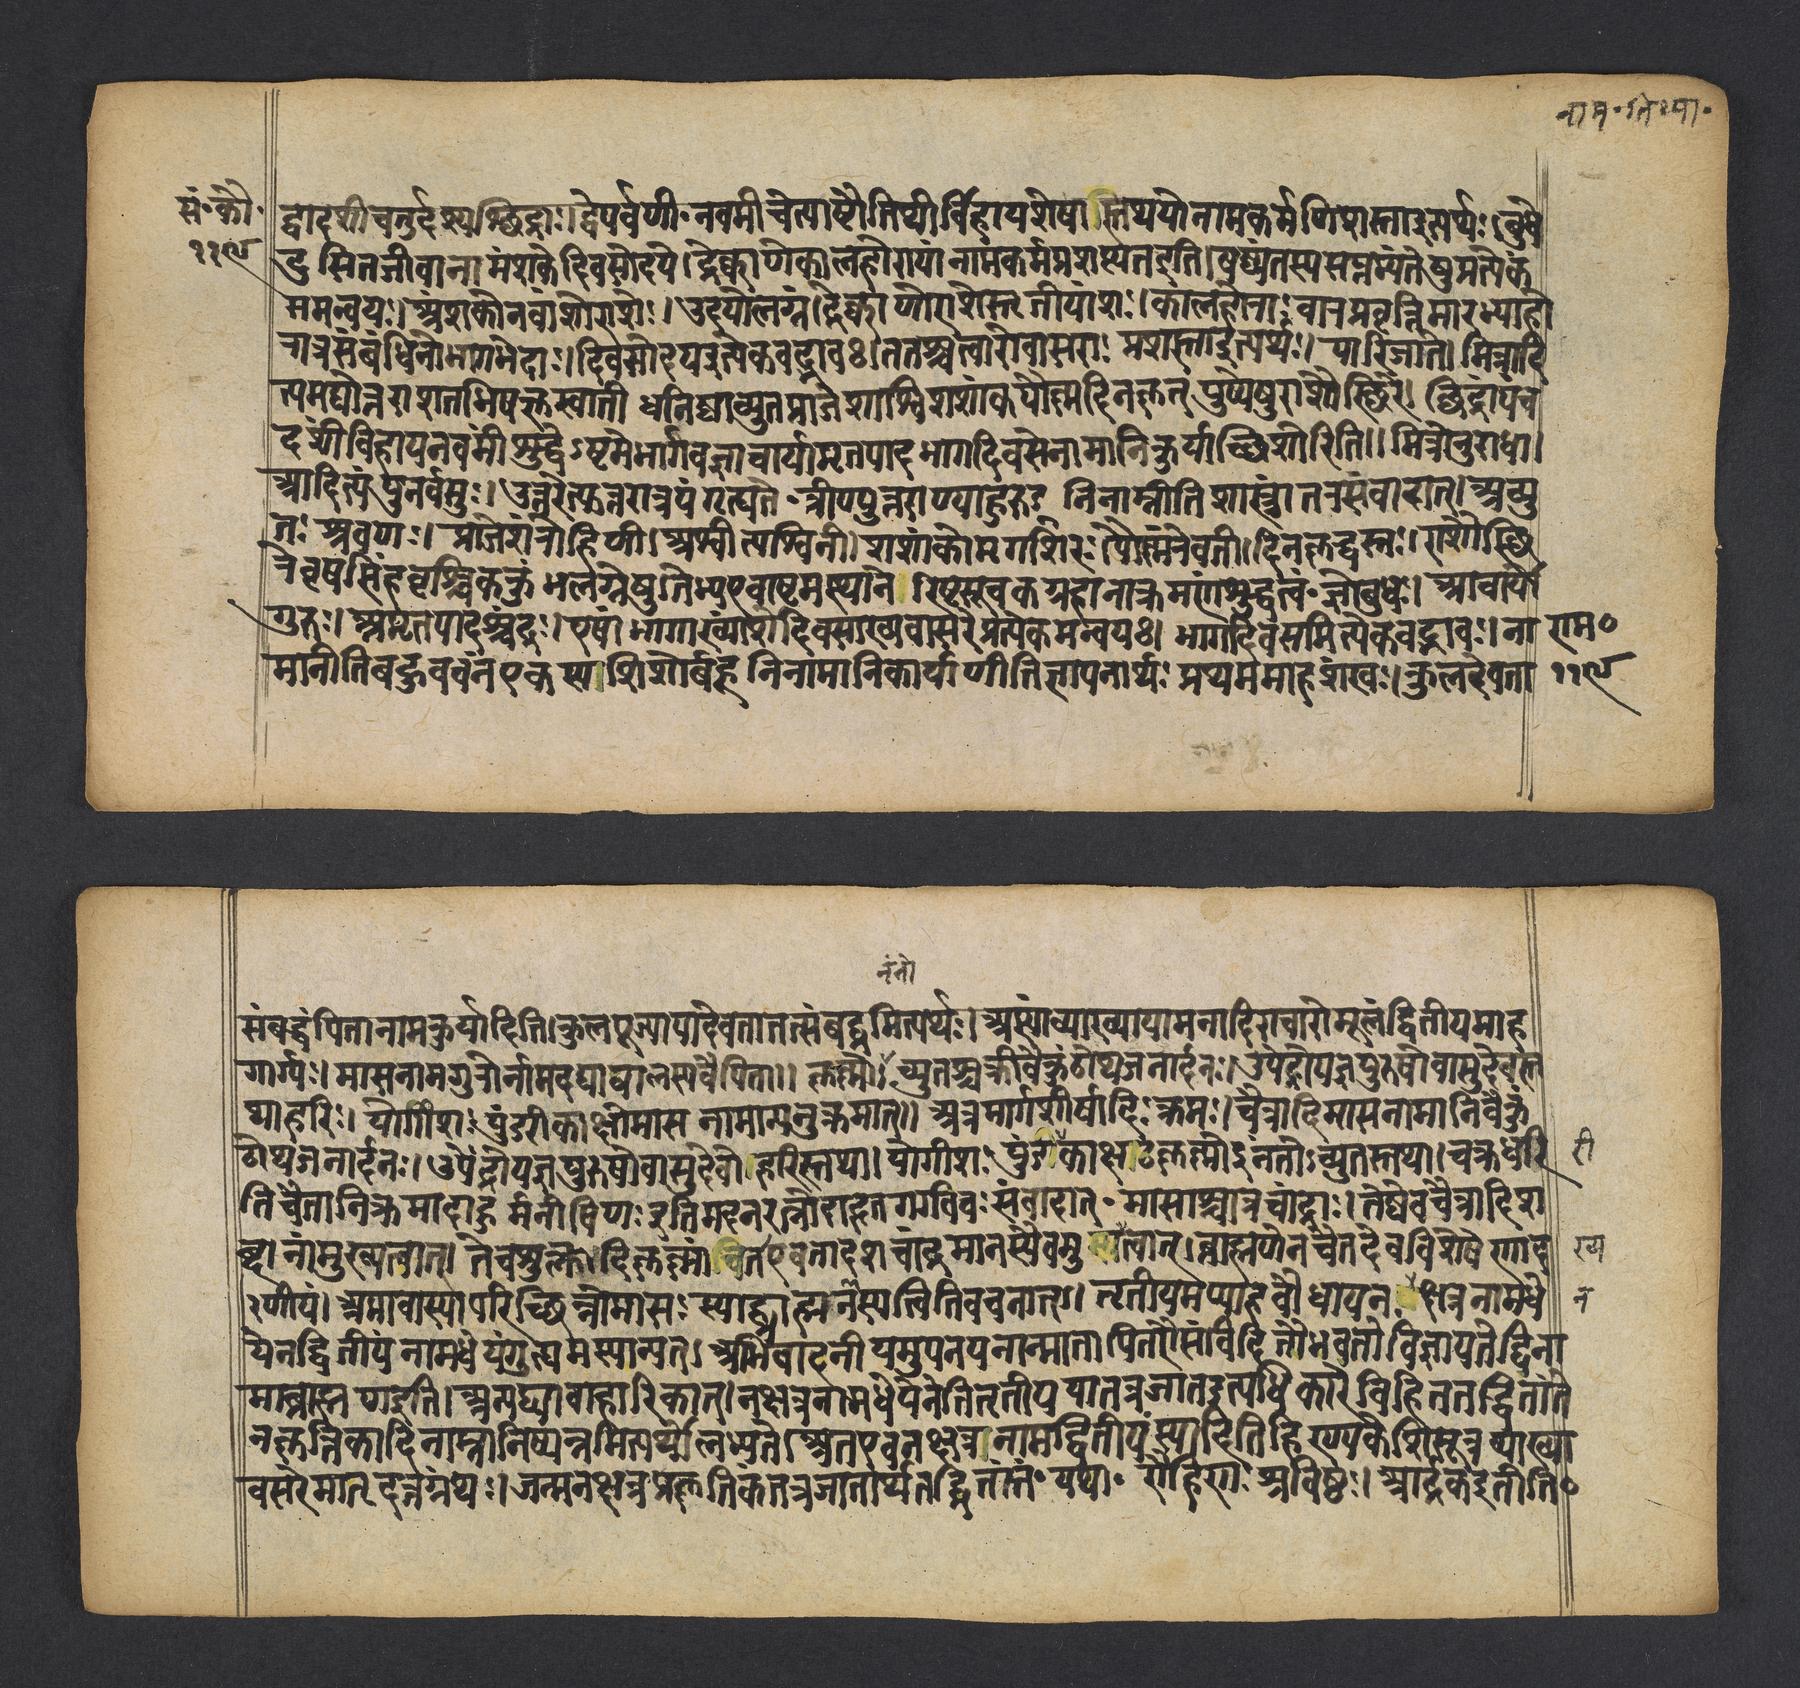 नाम॰नि॰षा॰
सं॰कौ॰
११९
द्वादशीचतुर्दश्यश्छिद्राः।द्वेपर्वणी॰नवमीचेत्यष्टौतिथीर्विहायशेषास्तिथयोनामकर्मणिशस्ताइत्यर्थः।बुधें
दुसितजीवानामंशकेदिवसोदये।द्रेष्काणेकालहोरायांनामकर्मप्रशस्यतइति।षष्ठ्यंतस्यसप्तम्यंतेषुप्रत्येकं
समन्वयः।अंशकोनवांशोराशेः।उदयोलग्नं।द्रेष्काणोराशेस्तृतीयांशः।कालहोराः वारप्रवृत्तिमारभ्याहो
रात्रसंबंधिनोभागभेदाः।दिवसोदयइत्येकवद्भावः।ततश्चत्वारोवासराः प्रशस्ताइत्यर्थः। पारिजाते।मित्रादि
त्यमघोत्तराशतभिषक्स्वाती धनिष्ठाच्युतप्राजेशाश्विशशांकपौष्णदिनकृत् पुष्येषुराशौस्थिरे। छिद्रांपंच
दशींविहायनवमींशुद्धेऽष्टमेभार्गवज्ञाचार्यामृतपादभागदिवसेनामानिकुर्याच्छिशोरिति॥मित्रोनुराधा।
आदित्यंपुनर्वसुः।उत्तरेत्युत्तरात्रयंगृह्यते॰
तः श्रवणः। प्राजेशंरोहिणी।अश्वीत्यश्विनी। शशांकोमृगशिरः।पौष्णंरेवती।दिनकृद्धस्तः।राशौस्थि
रेवृषसिंहवृश्चिककुंभलग्नेषुतेभ्यएवाष्टमस्थाने रिष्टसूचकग्रहानाक्रमणंशुद्धत्वं॰ज्ञोबुधः। आचार्यो
गुरुः।अमृतपादश्चंद्रः।एषां भागाख्यांशेदिवसाख्यवासरेप्रत्येकमन्वयः। भागदिवसमित्येकवद्भावः।ना
मानीतिबहुवचनंएकस्यशिशोर्बहूनिनामानिकार्याणीतिज्ञापनार्थं॰प्रथममाहशंखः।कुलदेवता
राम०
११९
नंतो
संबद्धंपितानामकुर्यादिति।कुलपूज्यायादेवतातत्संबद्धमित्यर्थः।अस्याव्याख्यायामनादिराचारोमूलंद्वितीयमाह
गार्ग्यः।मासनामगुरोर्नामदद्याद्बालस्यवैपिता॥ कृष्णो च्युतश्चक्रीवैकुंठोथजनार्दनः।उपेंद्रोयज्ञपुरुषोवासुदेवस्त
थाहरिः।योगीशः पुंडरीकाक्षोमास नामान्यनुक्रमात्॥ अत्रमार्गशीर्षादिः क्रमः।चैत्रादिमासनामानिवैकुं
ठोथजनार्दनः।उपेंद्रोयज्ञपुरुषोवासुदेवो हरिस्तथा। योगीशः पुंडकाक्षःकृष्णोऽनंतोऽच्युतस्तथा।चक्रधरि
री
तिचैतानिक्रमादाहुर्मनीषिणःइतिमदनरत्नोदाहृत संवादात्॰मासाश्चात्रचांद्राः।तेष्वेवचैत्रादिश
ब्दानांमुख्यत्वात्।तेचशुक्लादि चांद्रमानस्यैवमु त्वात्।ब्राह्मणेनचैतदेवविशेषेणाद
ख्य
रणीयं।अमावास्यापरिच्छिन्नोमासः स्याद्ब्राह्मणस्यत्वितिवचनात्। तृतीयमप्याहबौधायन क्षत्रनामधे
न
येनद्वितीयंनामधेयंगुह्यमस्यान्यत्।अभिवादनीयमुपनयनान्मातापितरौसंविदितौभवतोविज्ञायतेद्विना
माब्राह्मणइति।अन्यद्व्यावहारिकात्।नक्षत्रनामधेयेनेतितृतीययातत्रजातइत्यधिकारेविहिततद्धितांते
नकृत्तिकादिनाम्नानिष्पन्नमित्यर्थोलभ्यते।अतएवनक्षत्रनामद्वितीयंस्यादितिहिरण्यकेशिसूत्रव्याख्या
वसरेमातृदत्तग्रंथः।जन्मनक्षत्रप्रकृतिकंतत्रजातार्थतद्धितांतं॰यथा॰रौहिणः श्रविष्ठः। आर्द्रकइतीति०